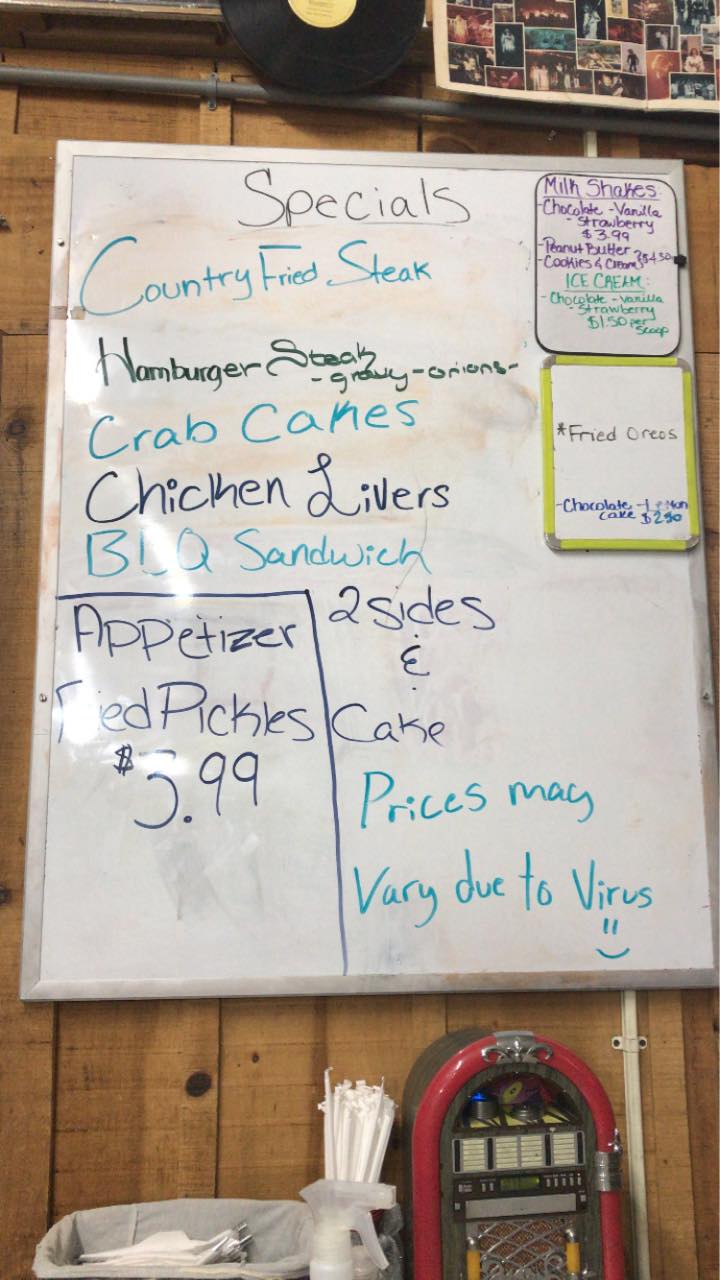 Specials
Country Fried Steak
Hamburger Steak
-gravy-onions-
Crab Cakes
Chicken Livers
Sandwich
2 sides
&
Cake
Prices may
Vary due to Virus
Appetizer
Fried Pickles
$3.99
Milk Shakes:
-Chocolate -Vanilla
-Strawberry
$3.99
-Peanut Butter
-Cookies & Cream $4.50
ICE CREAM:
-Chocolate -Vanilla
-Strawberry
$1.50 per
Scoop
*Fried Oreos
-Chocolate -Lemon
Cake $2.50